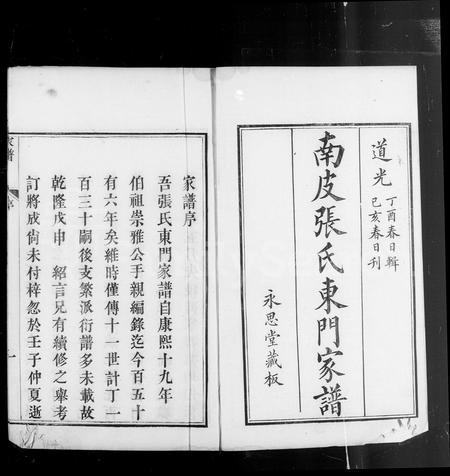 道光
丁酉春日輯
己亥春日刊
南皮張氏東門家譜
永思堂藏板
家譜序
吾張氏東門家譜自康熙十九年
伯祖崇雅公手親編錄迄今百五十
有六年矣維時僅傳十一世計丁一
百三十嗣後支繁派衍譜多未載故
乾隆戊申 紹言兄有續修之舉考
訂將成尚未付梓忽於壬子仲夏逝
家譜
序
一